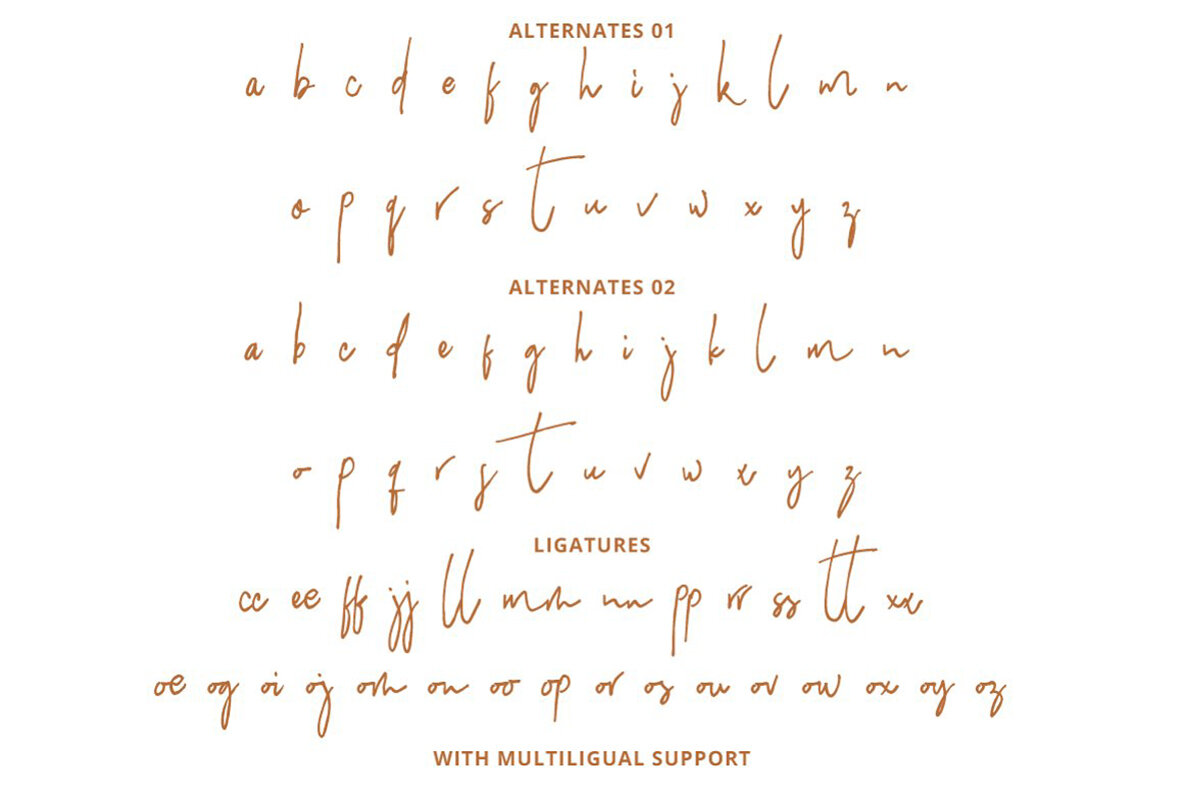 ALTERNATES 01
a b c d e f g h i j k l m n
o p q r s t u v w x y z
ALTERNATES 02
a b c d e f g h i j k l m n
o p q r s t u v w x y z
LIGATURES
cc ee ff jj ll mm nn pp rr ss tt xx
oe og oi oj om on oo op or os ou ov ow ox oy oz
WITH MULTILIGUAL SUPPORT